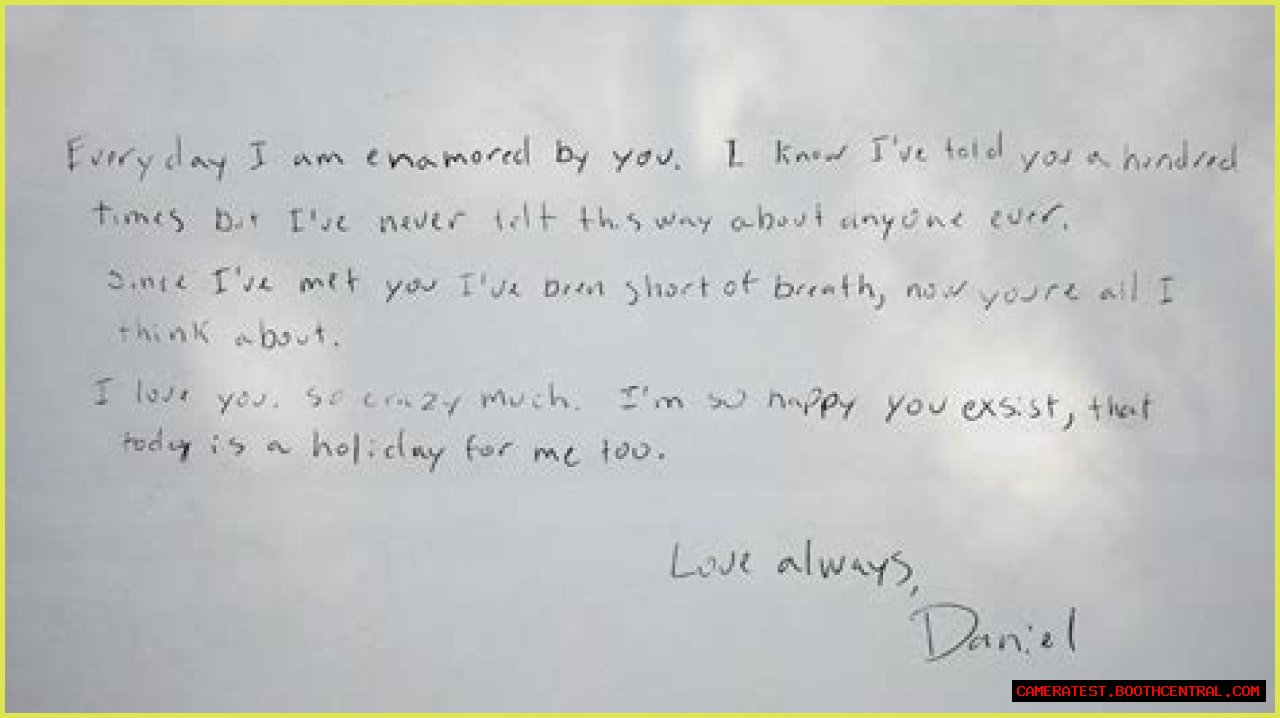 Everyday I am enamored by you. I know I've told you a hundred
times but I've never felt this way about anyone ever.
Since I've met you I've been short of breath, now you're all I
think about.
I love you. so crazy much. I'm so happy you exsist, that
today is a holiday for me too.
Love always,
Daniel
CAMERATEST.BOOTHCENTRAL.COM